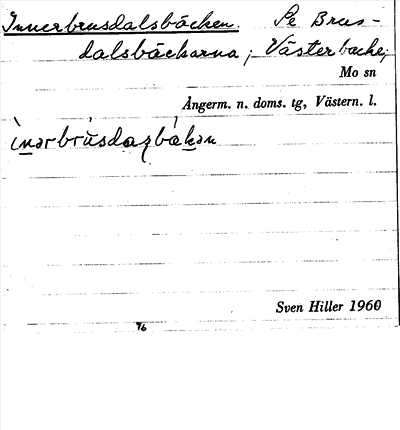 Innerbrusdalsbäcken. Se Brus-
dalsbäckarna; Västerbacke,
Mo sn
Ångerm. n. doms. tg, Västern. l.
ìnərbrúsdaʐbäkən
Sven Hiller 1960
76